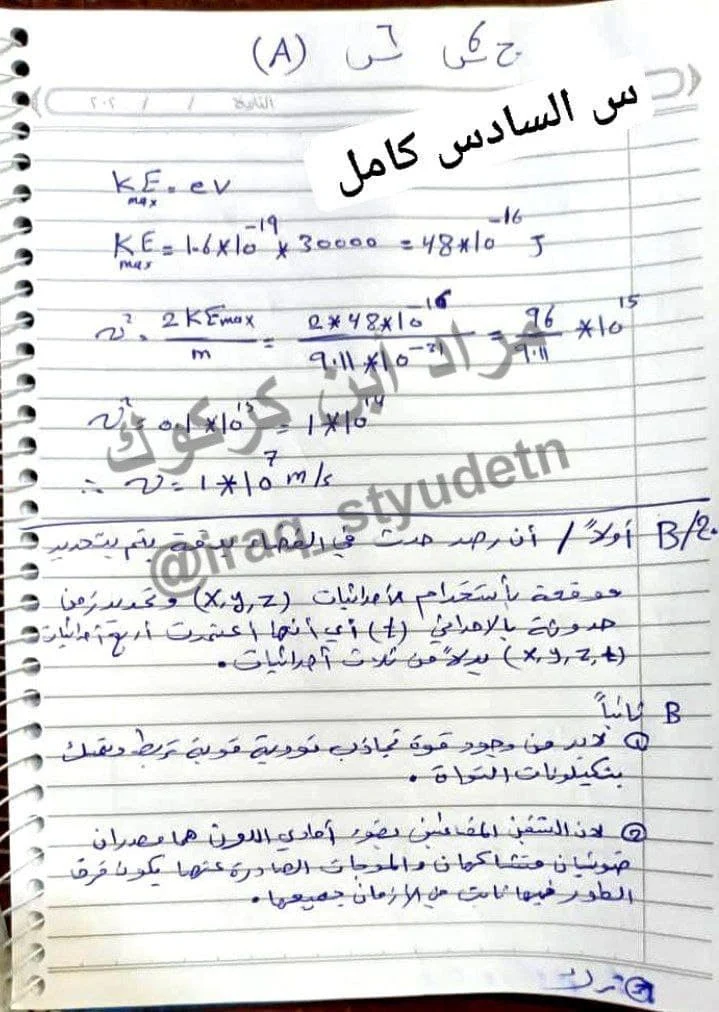 ج س6 س٦ (A)
التاريخ / / ٢٠٢
س السادس كامل
KE max = eV
KE max = 1.6*10^-19 * 30000 = 48*10^-16 J
v² = 2KEmax / m = 2*48*10^-16 / 9.11*10^-31 = 96 / 9.11 *10^15
مراد أبن كركوك
v² = 0.1*10^15 = 1*10^14
∴ v = 1*10^7 m/s
@iraq_styudetn
ج/B أولاً / أن رصد حدث في الفضاء بدقة يتم بتحديد
موقعة بأستخدام الأحداثيات (x,y,z) وتحديد زمن
حدوثة بالاحداثي (t) أي أنها أعتمدت أربع أحداثيات
(x,y,z,t) بدلاً من ثلاث أحداثيات.
B ثانياً
① لابد من وجود قوة تجاذب نووية قوية تربط وتمسك
بنكيلونات النواة.
② لان الشقين المضائين بضوء أحادي اللون هما مصدران
ضوئيان متشاكهان والموجات الصادرة عنهما يكون فرق
الطور فيها ثابت في الأزمان جميعها.
③ ترك